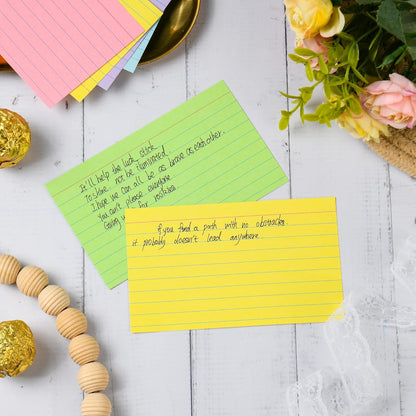 It'll help the luck stick
To shine not be illuminated.
I hope we can all be as brave as each other.
You can't please everyone
Going
for
If you find a path with no obstacles.
it probably doesn't lead anywhere